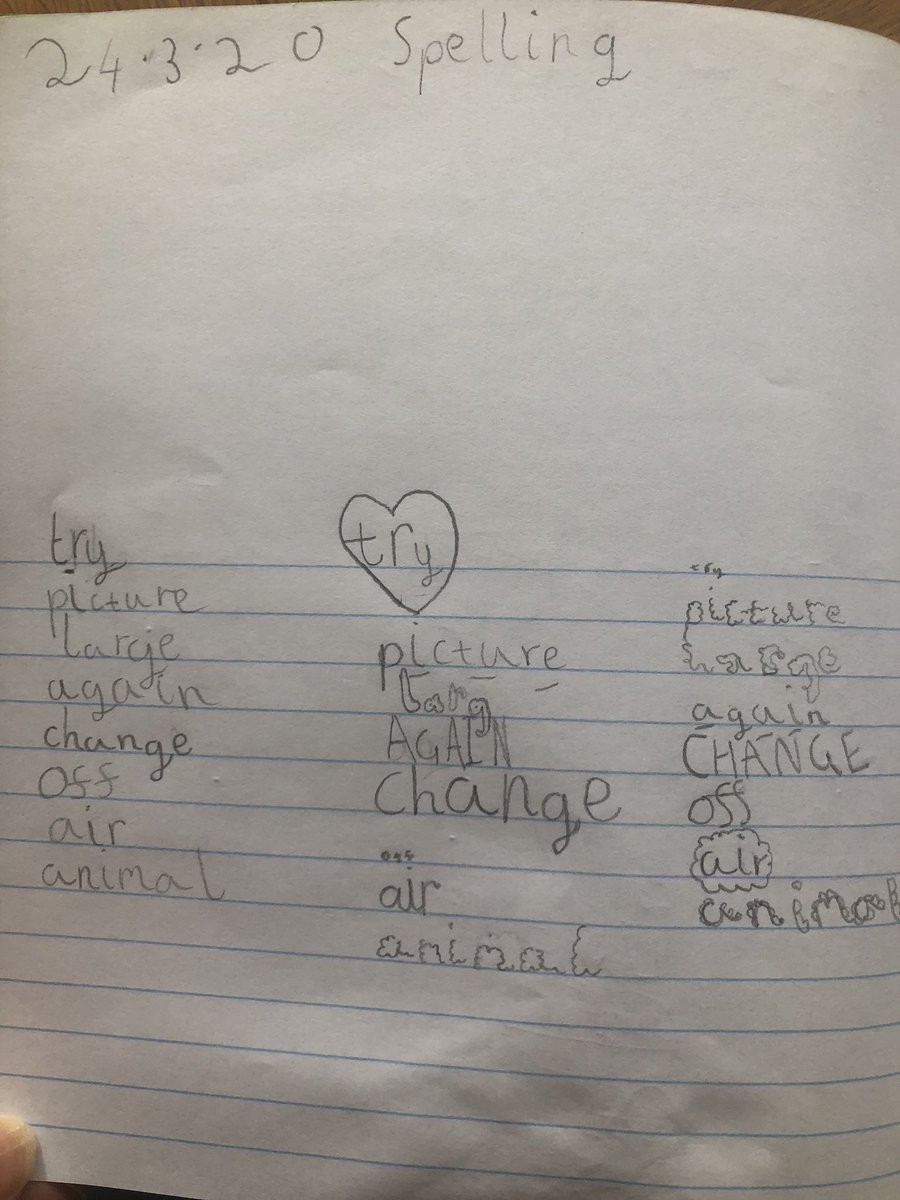 24.3.20 Spelling
try
picture
large
again
change
off
air
animal
try
picture
larg
AGAIN
change
off
air
animal
try
picture
large
again
CHANGE
off
air
animal